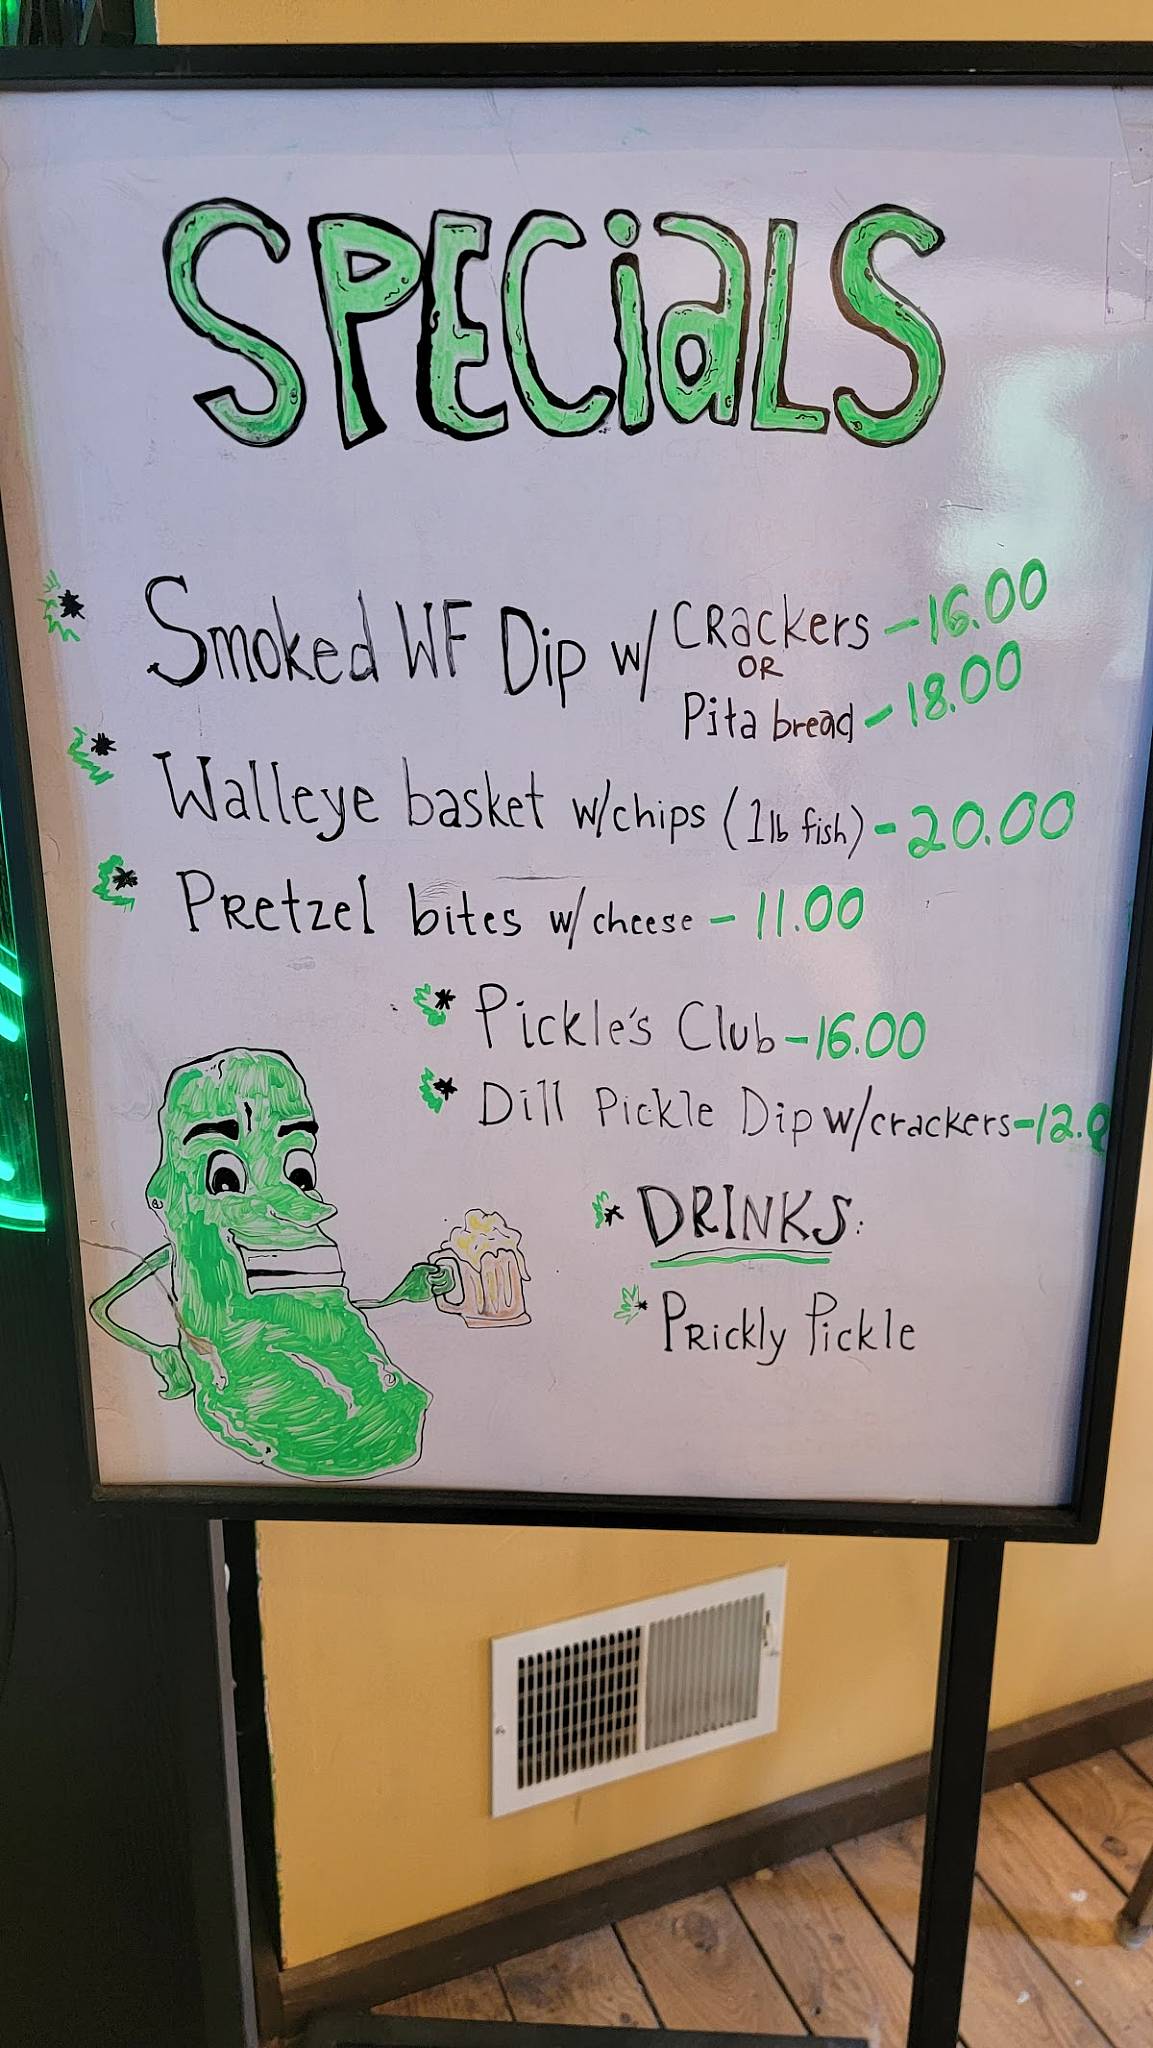 SPECiaLS
* Smoked WF Dip w/ CRackers - 16.00
OR
Pita bread - 18.00
* Walleye basket w/chips (1lb fish) - 20.00
* Pretzel bites w/cheese - 11.00
* Pickle's Club - 16.00
* Dill Pickle Dip w/crackers - 12.0
* DRINKS:
* Prickly Pickle